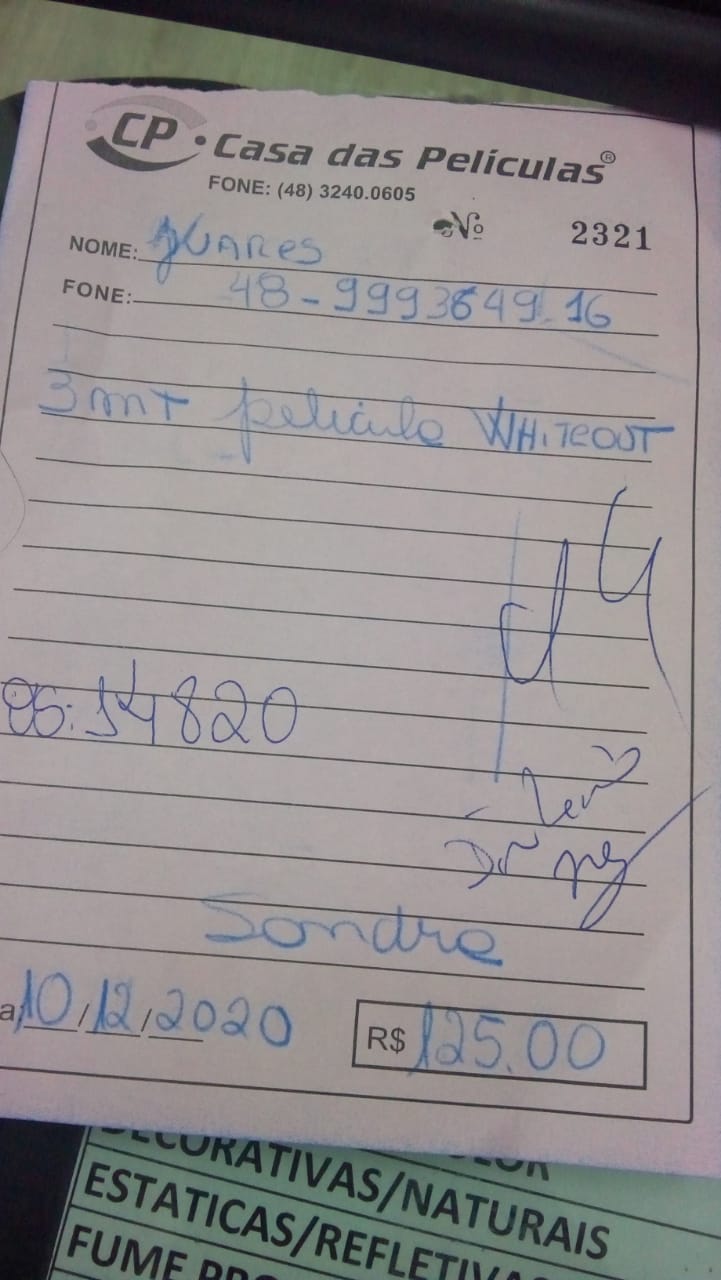 CP • Casa das Películas®
FONE: (48) 3240.0605
Nº 2321
NOME: JUARES
FONE: 48-9993649.16
3mt película WHITEOUT
OS: 14820
Sandra
a 10/12/2020 R$ 125.00
DECORATIVAS/NATURAIS
ESTATICAS/REFLETIVA
FUME PRO